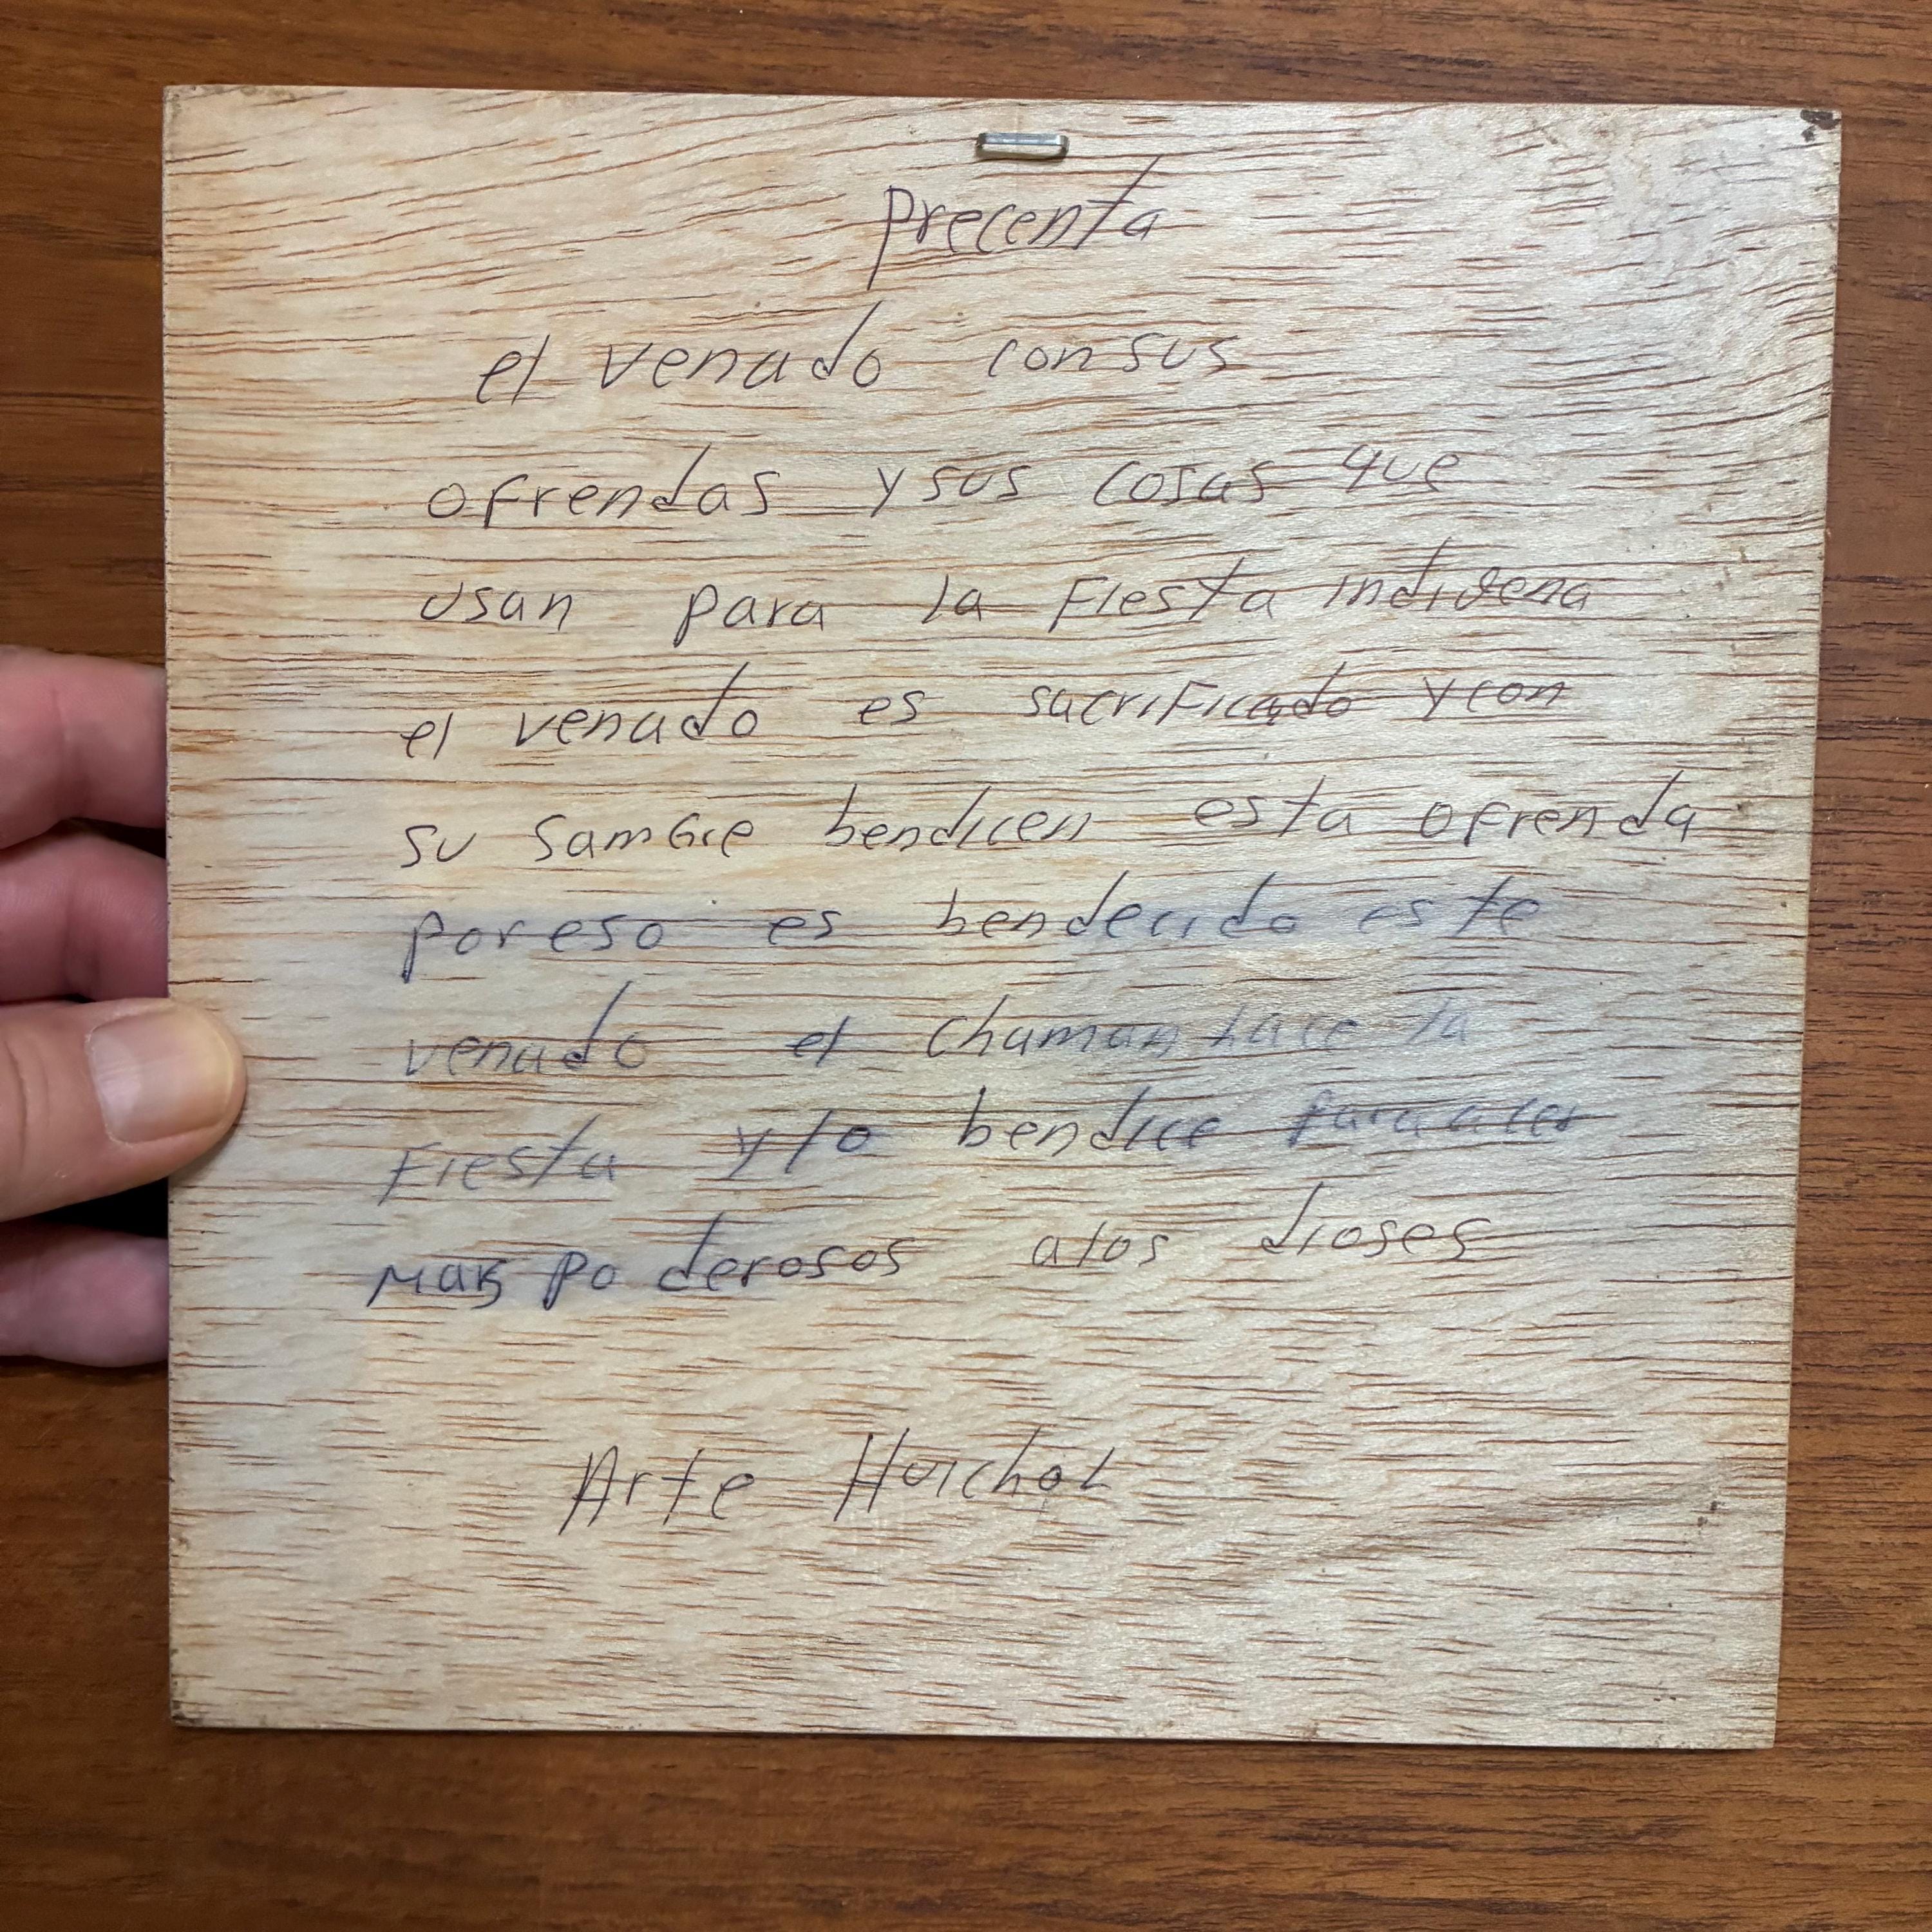 precenta
el venado con sus
ofrendas y sus cosas que
usan para la Fiesta indigena
el venado es sacrificado y con
su SamGre bendicen esta ofrenda
por eso es bendecido este
venado el chaman hace la
Fiesta y lo bendice para acer
mas poderosos a los dioses
Arte Huichol